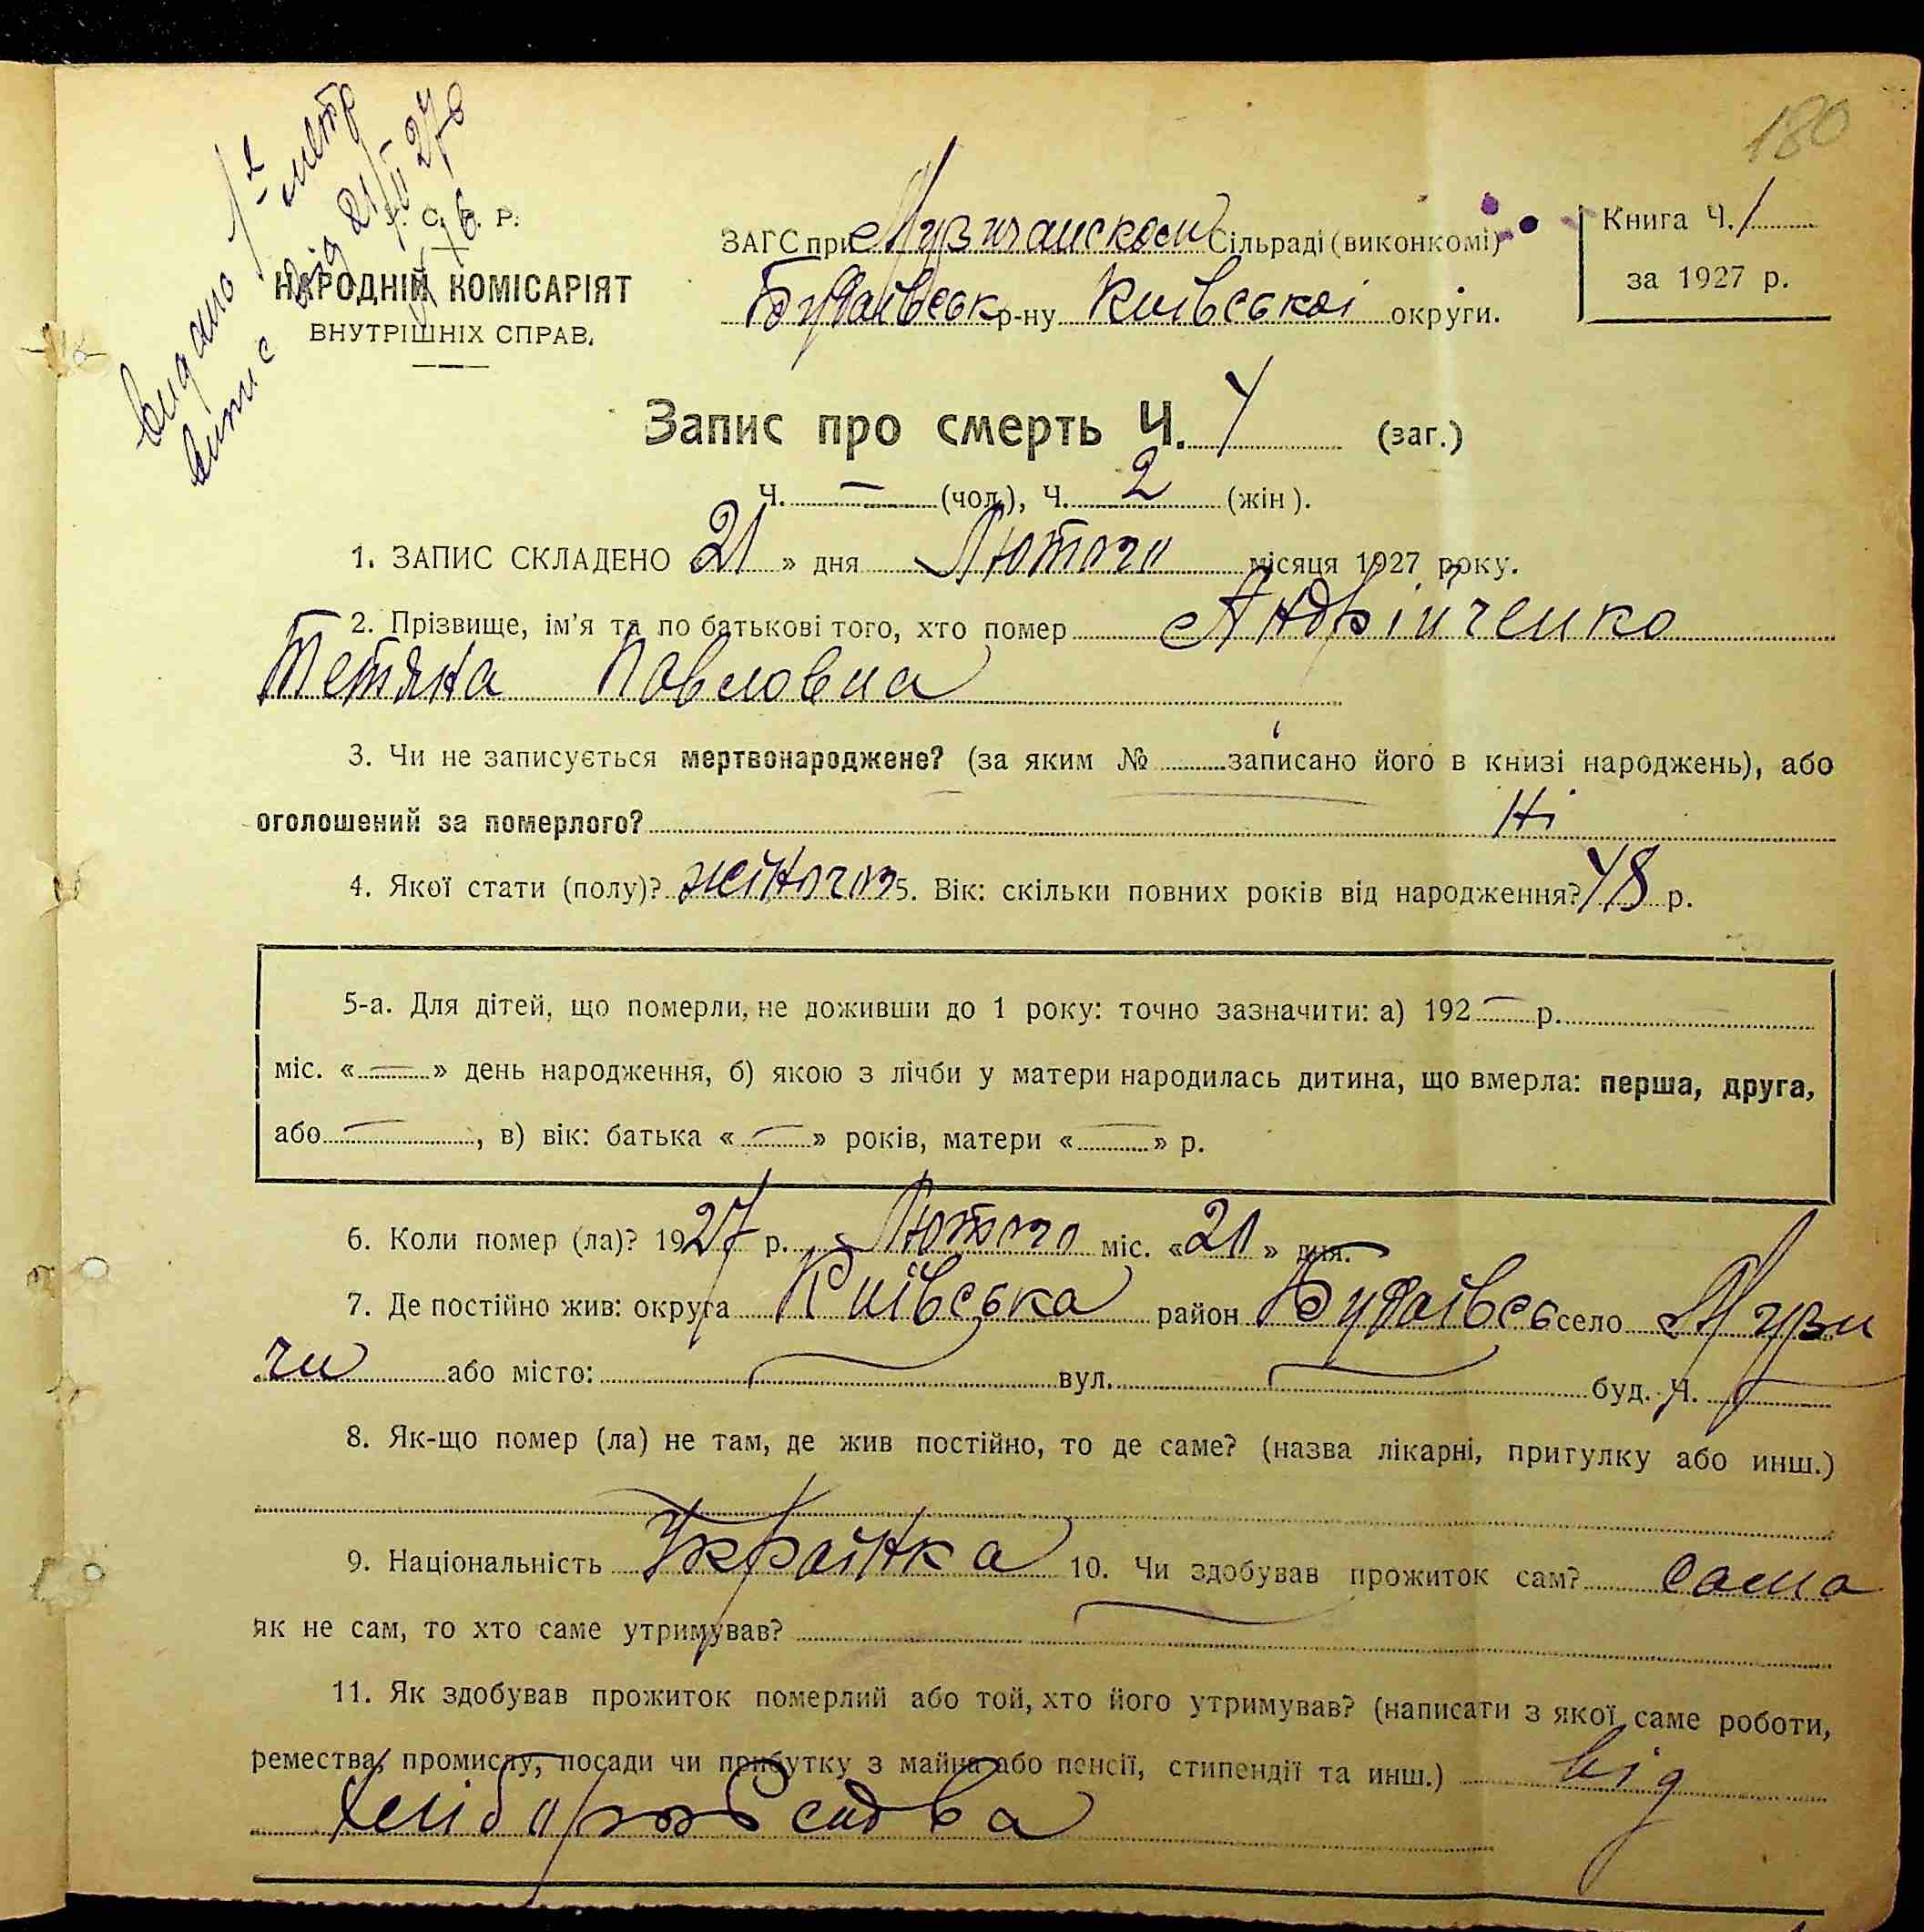 180
видано 1-й метр
витис від 21/II 27 р
У. С. Р. Р.
НАРОДНІЙ КОМІСАРІЯТ
ВНУТРІШНІХ СПРАВ.
ЗАГС при Музичанском Сільраді (виконкомі)
Будаївськ р-ну Київської округи.
Книга Ч. 1
за 1927 р.
Запис про смерть Ч. 4 (заг.)
Ч. — (чол.), Ч. 2 (жін).
1. ЗАПИС СКЛАДЕНО 21 » дня Лютого місяця 1927 року.
2. Прізвище, ім'я та по батькові того, хто помер Андрійченко
Тетяна Повловна
3. Чи не записується мертвонароджене? (за яким № записано його в книзі народжень), або
оголошений за померлого? Ні
4. Якої стати (полу)? жіночого 5. Вік: скільки повних років від народження? 48 р.
5-а. Для дітей, що померли, не доживши до 1 року: точно зазначити: а) 192 — р.
міс. « — » день народження, б) якою з лічби у матери народилась дитина, що вмерла: перша, друга,
або —, в) вік: батька « — » років, матери « — » р.
6. Коли помер (ла)? 1927 р. Лютого міс. «21» дня.
7. Де постійно жив: округа Київська район Будаївсь село Музи
чи або місто: — вул. — буд. Ч. —
8. Як-що помер (ла) не там, де жив постійно, то де саме? (назва лікарні, притулку або инш.)
9. Національність Українка 10. Чи здобував прожиток сам? сама
як не сам, то хто саме утримував? —
11. Як здобував прожиток померлий або той, хто його утримував? (написати з якої саме роботи,
ремества, промислу, посади чи прибутку з майна або пенсії, стипендії та инш.) від